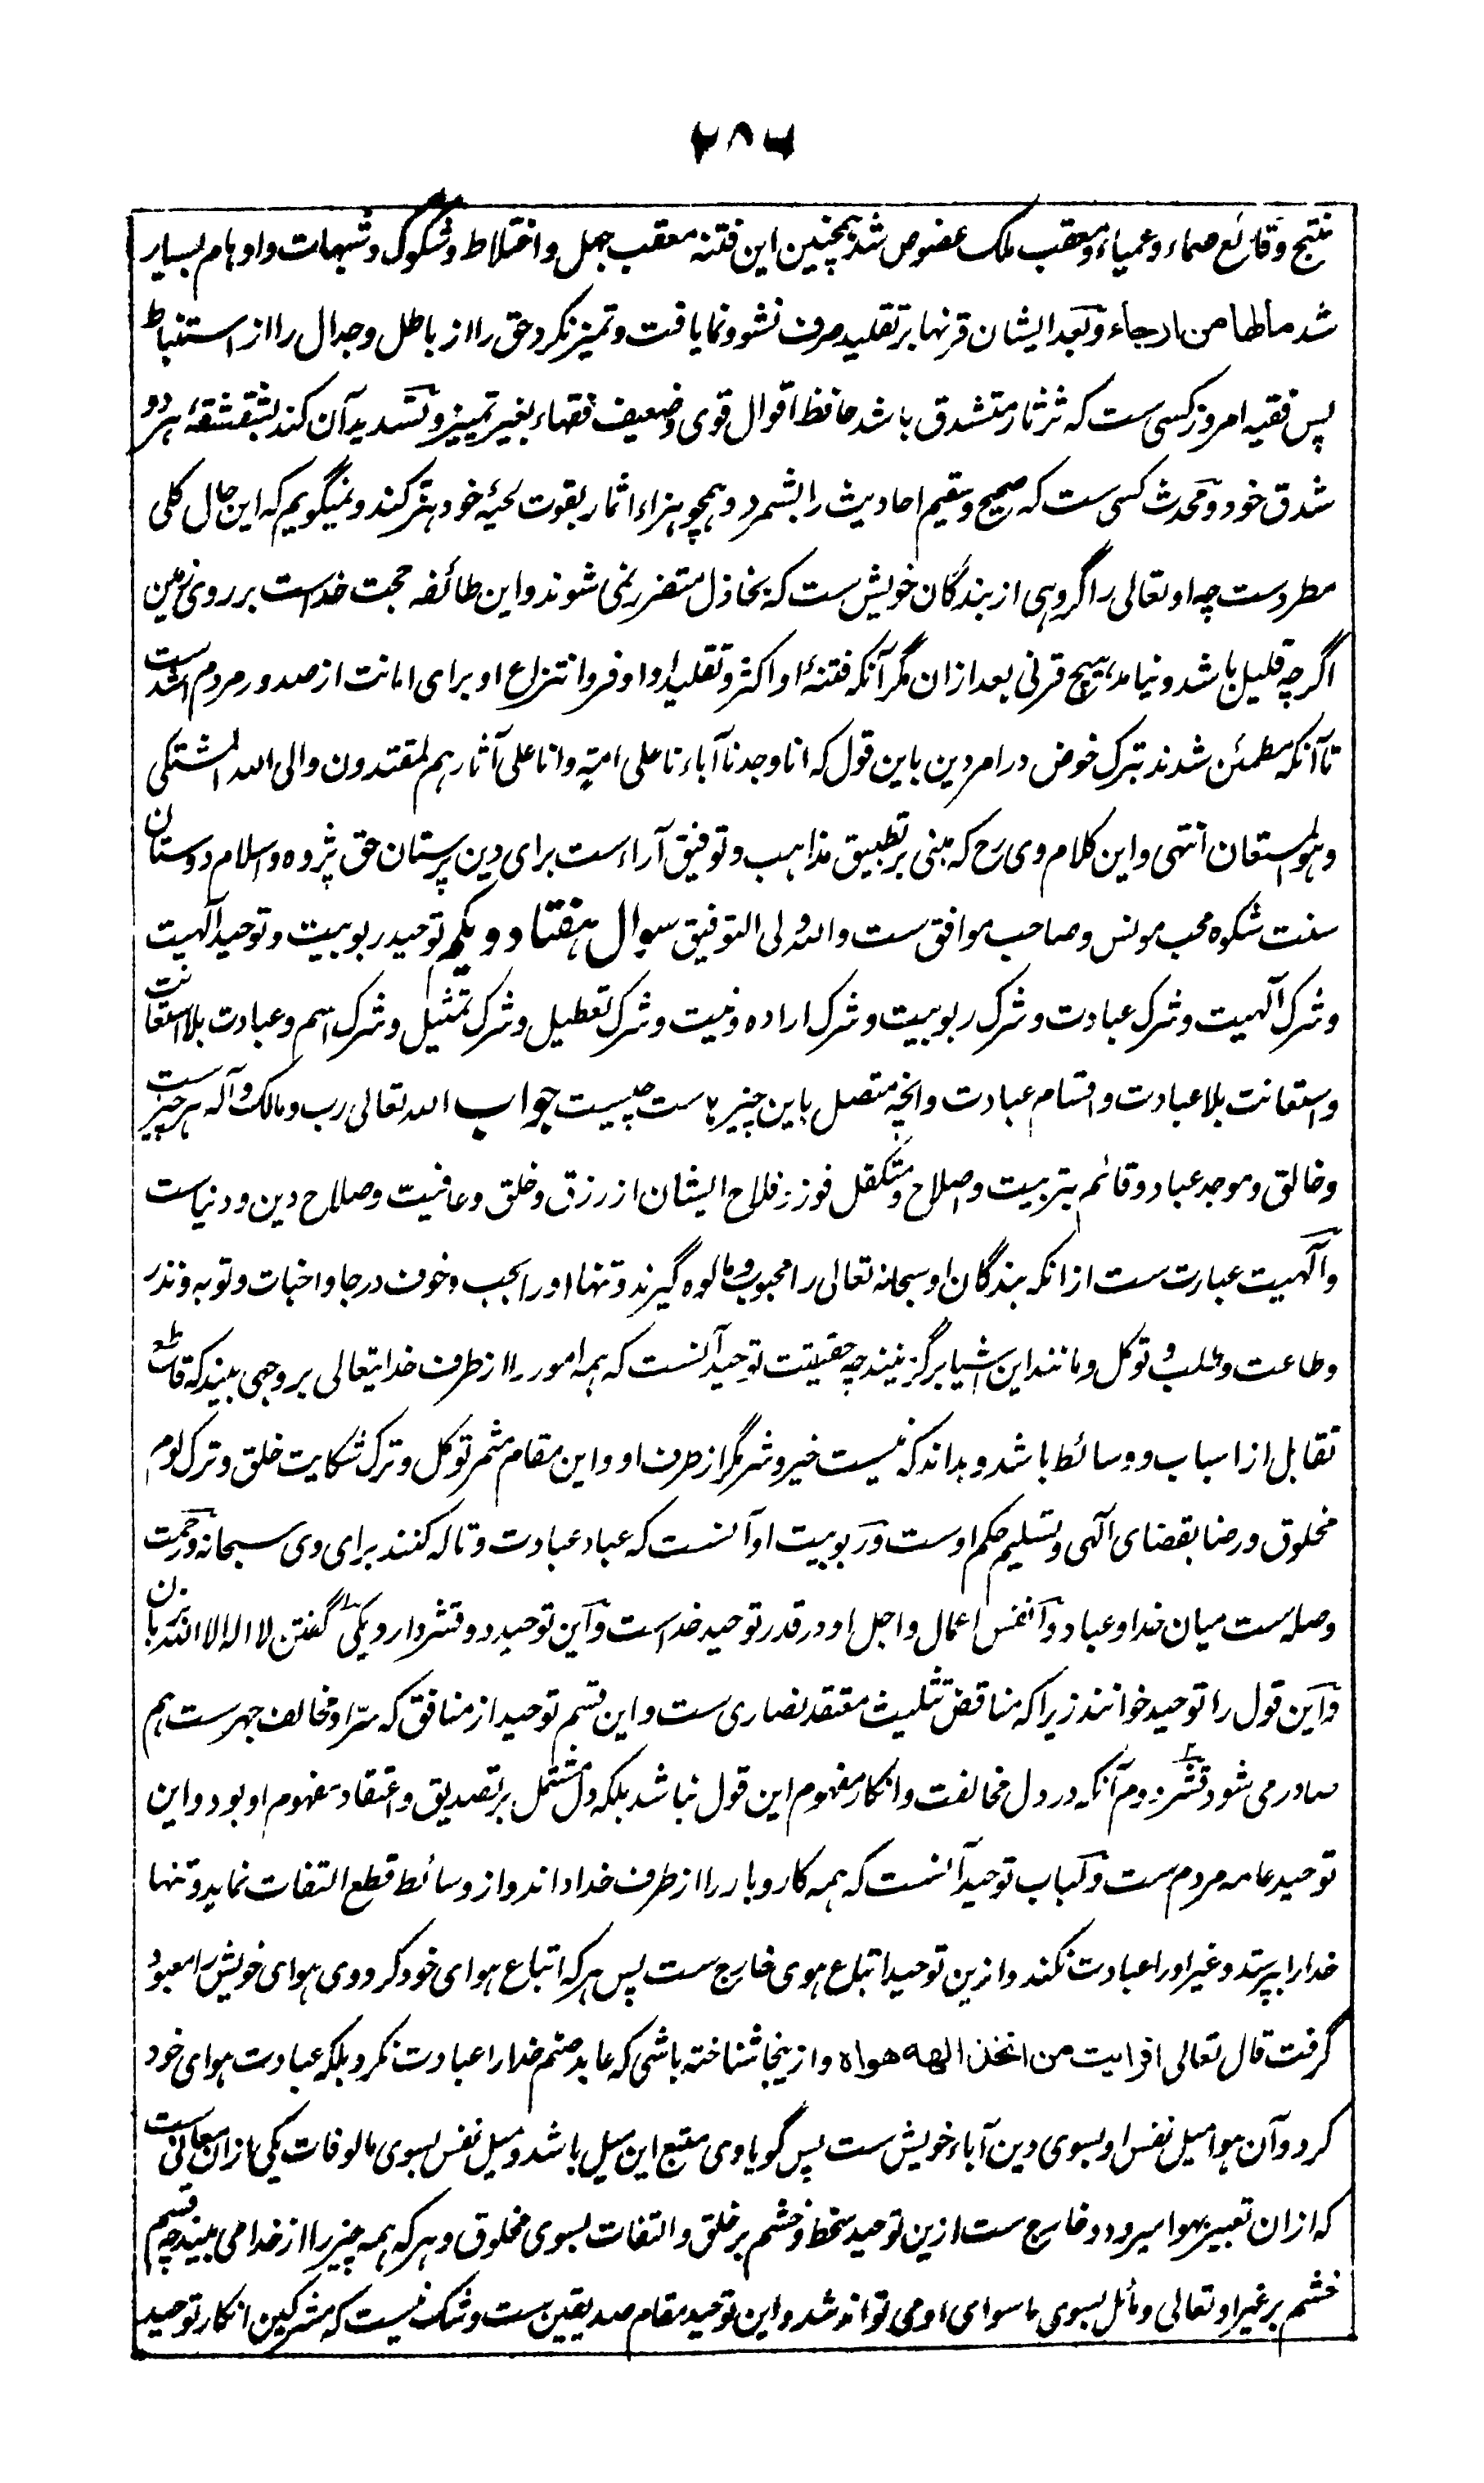 ۲۸۶
منتج وقائع صماء وعمیاء ومعقب ملک عضوض شد همچنین این فتنه معقب جهل واختلاط وشکوک وشبهات واوهام بسیار
شد مالها من ارجاء وبعد ایشان قرنها بر تقلید صرف نشو ونما یافت وتمیز نکرد حق را از باطل وجدال را از استنباط
پس فقیه امروز کسی ست که ثرثار متشدق باشد حافظ اقوال قوی وضعیف فقهاء بغیر تمییز وتشدید آن کند بشقشقهٔ هر دو
شدق خود ومحدث کسی ست که صحیح وسقیم احادیث را بشمرد وهمچو هزاء اثمار بقوت لحیهٔ خود هتر کند ونمیگویم که این حال کلی
مطردست چه او تعالی را گروهی از بندگان خویش ست که بخاذل متضرر نمی شوند واین طائفه حجت خداست بر روی زمین
اگرچه قلیل باشد ونیامد هیچ قرنی بعد ازان مگر آنکه فتنهٔ او اکثر وتقلید او اوفر وانتزاع او برای امانت از صدور مردم اشد ست
تا آنکه مطمئن شدند بترک خوض در امر دین باین قول که انا وجدنا آباءنا علی امة وانا علی آثارهم لمقتدون والی الله المشتکی
وهو المستعان انتهی واین کلام وی رح که مبنی بر تطبیق مذاهب وتوفیق آراءست برای دین پرستان حق پژوه واسلام دوستان
سنت شکوه محب مونس وصاحب موافق ست والله ولی التوفیق سوال هفتاد ویکم توحید ربوبیت وتوحید آلهیت
وشرک آلهیت وشرک عبادت وشرک ربوبیت وشرک اراده ونیت وشرک تعطیل وشرک تمثیل وشرک اسم وعبادت بلا استعانت
واستعانت بلا عبادت واقسام عبادت وانچه متصل باین چیزهاست چیست جواب الله تعالی رب ومالک وآله هر چیز ست
وخالق وموجد عباد وقائم بتربیت واصلاح ومتکفل فوز وفلاح ایشان از رزق وخلق وعافیت وصلاح دین ودنیاست
وآلهیت عبارت ست ازانکه بندگان او سبحانه تعالی را محبوب ومالوه گیرند وتنها او را بحب وخوف ورجا واخبات وتوبه ونذر
وطاعت وطلب وتوکل ومانند این اشیا برگزینند چه حقیقت توحید آنست که همه امور را از طرف خدایتعالی بروجهی بیند که قاطع
تقابل از اسباب ووسائط باشد وبداند که نیست خیر وشر مگر از طرف او واین مقام مثمر توکل وترک شکایت خلق وترک لوم
مخلوق ورضا بقضای آلهی وتسلیم حکم اوست وربوبیت او آنست که عباد عبادت وتاله کنند برای وی سبحانه ورحمت
وصله ست میان خدا وعباد وآنفس اعمال واجل او در قدر توحید خداست وآین توحید دو قشر دارد یکی گفتن لا اله الا الله بزبان
وآین قول را توحید خوانند زیرا که مناقض تثلیث معتقد نصاری ست واین قسم توحید از منافق که سرّ او مخالف جهرست هم
صادر می شود قشر دوم آنکه در دل مخالفت وانکار مفهوم این قول نباشد بلکه دل مشتمل بر تصدیق واعتقاد مفهوم او بود واین
توحید عامه مردم ست ولباب توحید آنست که همه کار وبار را از طرف خدا داند واز وسائط قطع التفات نماید وتنها
خدا را بپرستد وغیر او را عبادت نکند وازین توحید اتباع هوی خارج ست پس هر که اتباع هوای خود کرد وی هوای خویش را معبود
گرفت قال تعالی افرایت من اتخذ الهه هواه وازینجا شناخته باشی که عابد صنم خدا را عبادت نکرد بلکه عبادت هوای خود
کرد وآن هوا میل نفس او بسوی دین آباء خویش ست پس گویا وی متبع این میل باشد ومیل نفس بسوی مالوفات یکی ازان معانی ست
که ازان تعبیر بهوا میرود وخارج ست ازین توحید سخط وخشم بر خلق والتفات بسوی مخلوق وهر که همه چیز را از خدا می بیند چه قسم
خشم بر غیر او تعالی ومائل بسوی ماسوای او می تواند شد واین توحید مقام صدیقین ست وشک نیست که مشرکین انکار توحید